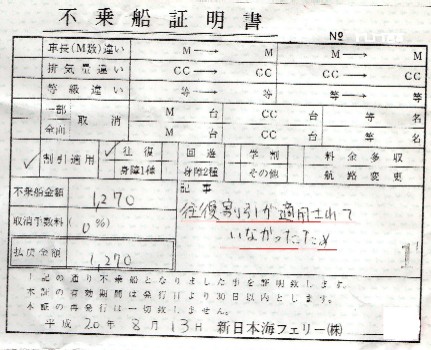 不乗船証明書
№
車長(M数)違い M → M M → M
排気量違い CC → CC CC → CC
等級違い 等 → 等 等 → 等
一部 取消 M 台 CC 台 等 名
全面 M 台 CC 台 等 名
✓ 割引適用 ✓ 往復 回遊 学割 料金多収
身障1種 身障2種 その他 航路変更
不乗船金額 1,270
記事
往復割引が適用されて
いなかったため
取消手数料 (0%)
払戻金額 1,270
上記の通り不乗船となりました事を証明致します。
本証の有効期間は発行日より30日以内とします。
本証の再発行は一切致しません。
平成20年8月13日 新日本海フェリー(株)